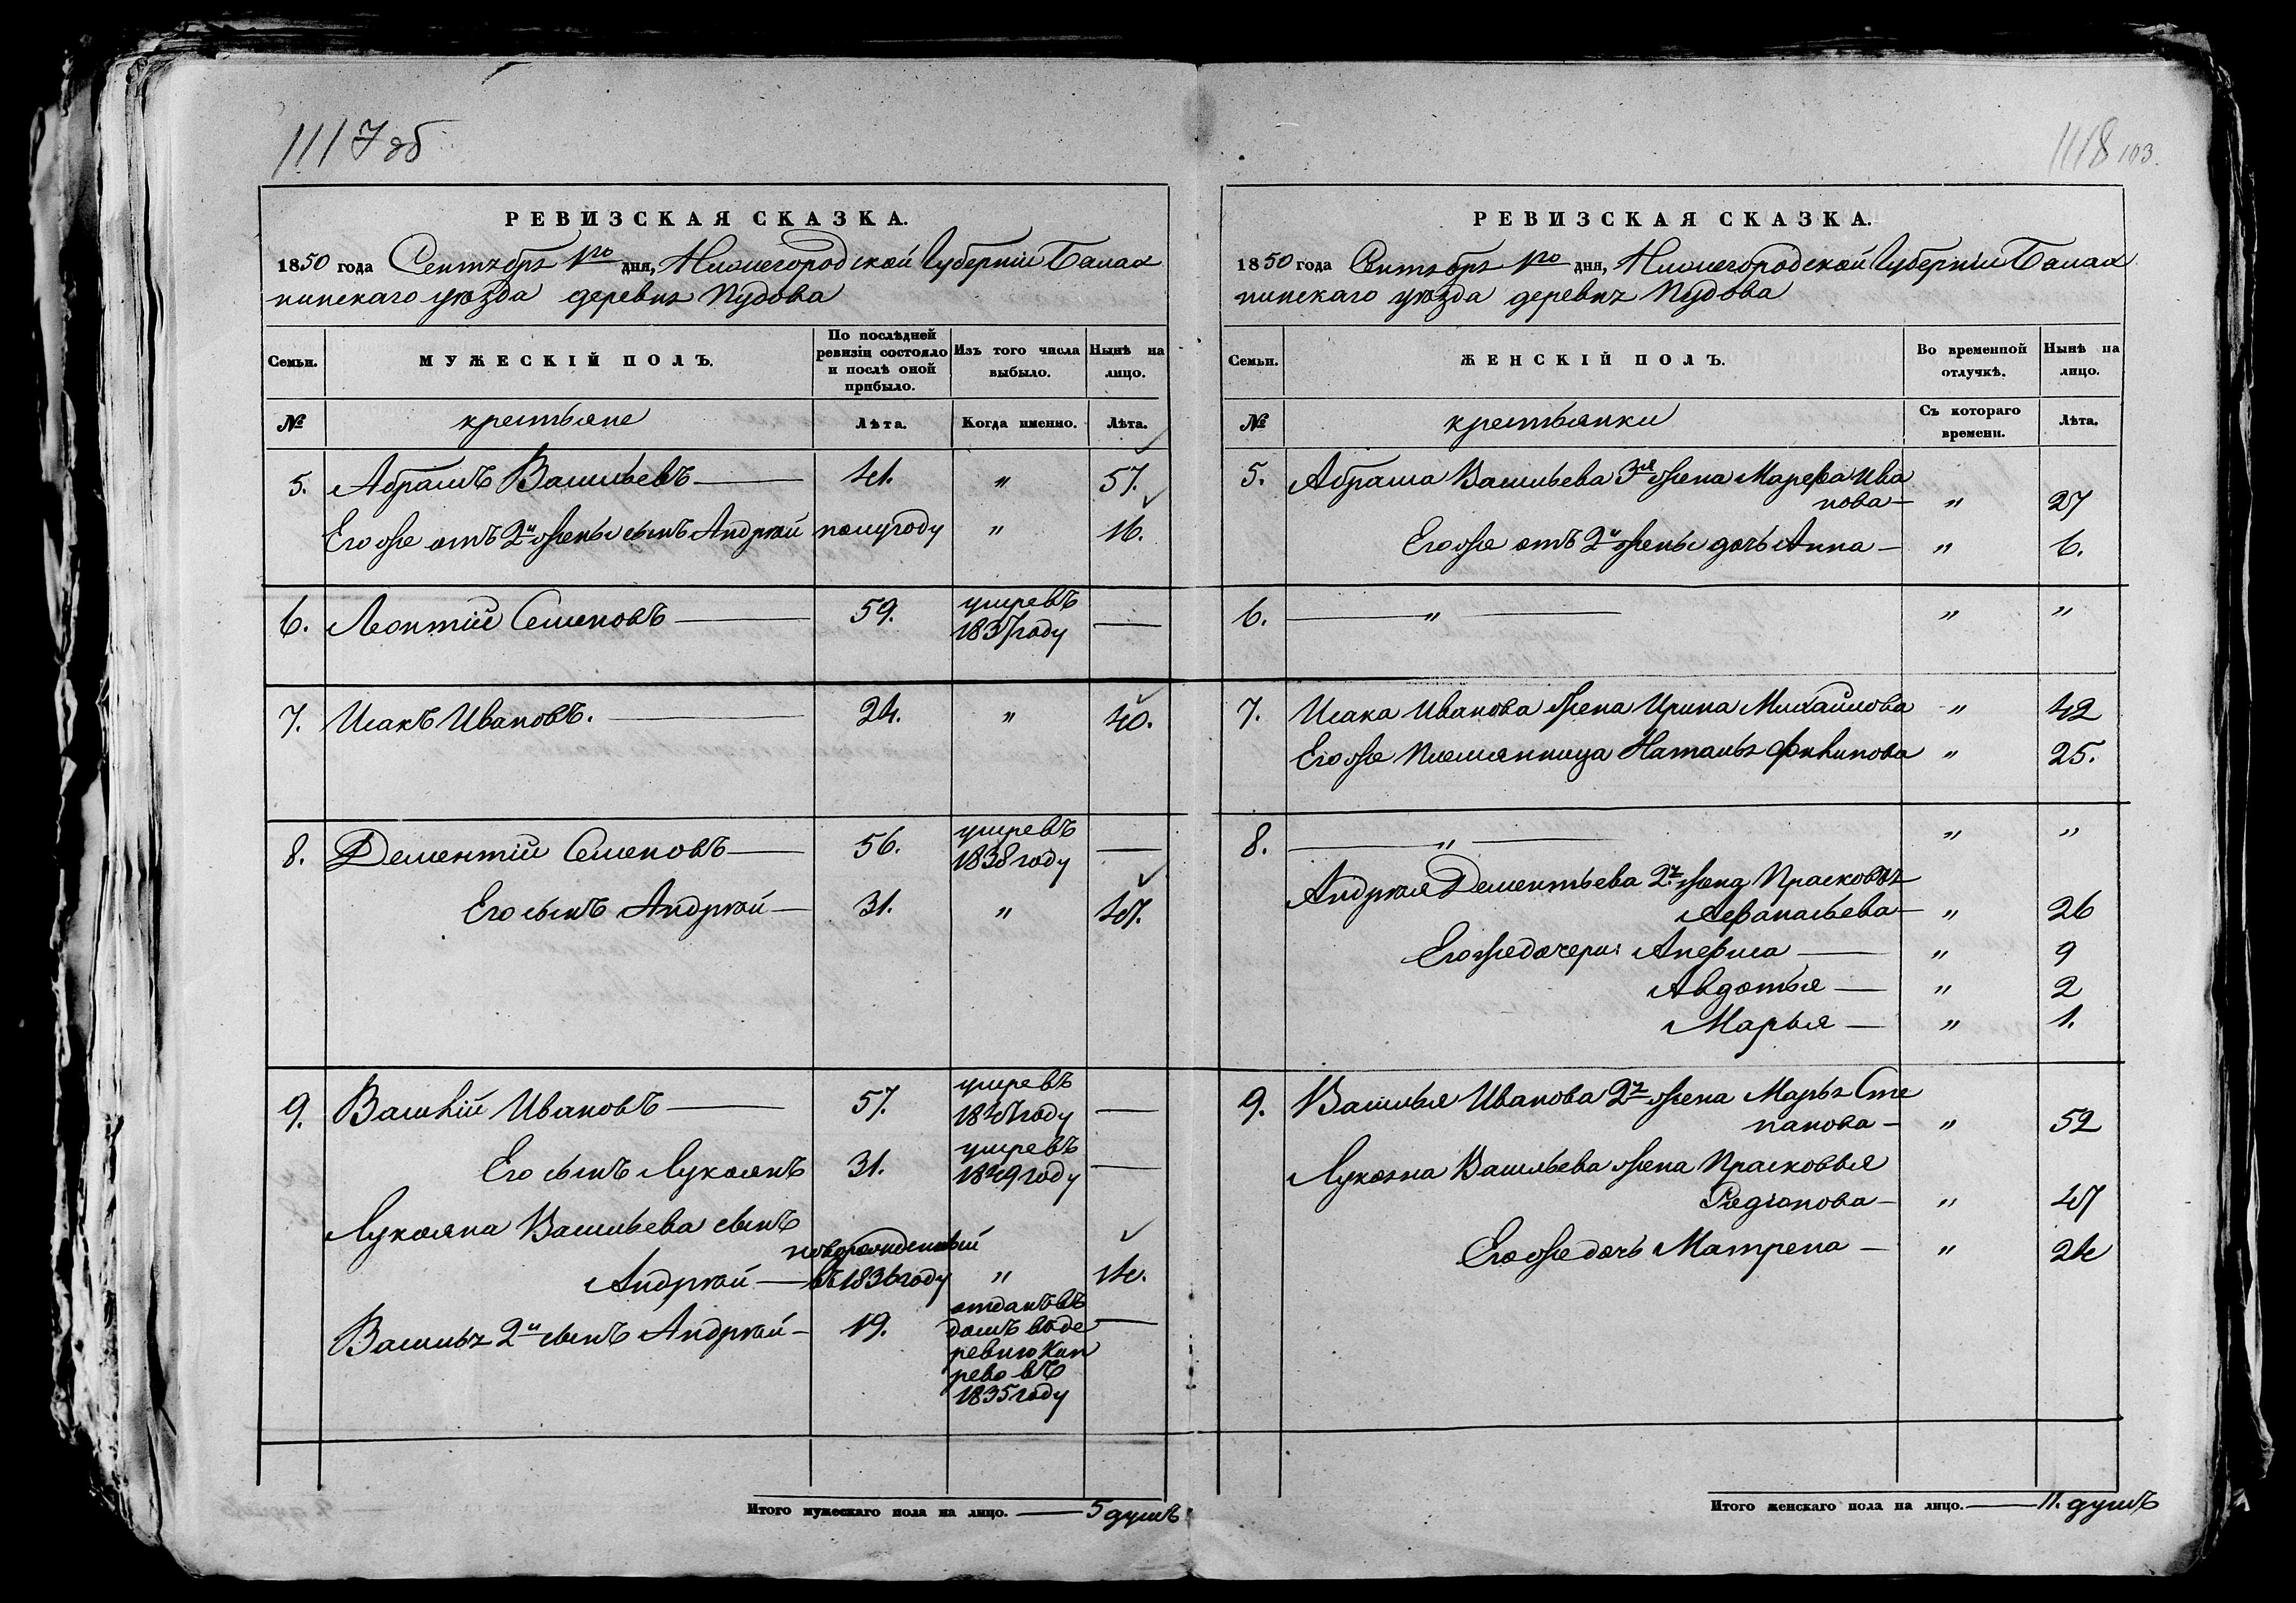 1117 об
РЕВИЗСКАЯ СКАЗКА.
1850 года Сентября 1го дня, Нижегородской Губерніи Балах
нинскаго уѣзда деревни Пудова
Семьи. МУЖЕСКІЙ ПОЛЪ. По послѣдней ревизіи состояло и послѣ оной прибыло. Изъ того числа выбыло. Нынѣ на лицо.
№ крестьяне Лѣта. Когда именно. Лѣта.
5. Абрамъ Васильевъ — 41. " 57.
Его же отъ 2й жены сынъ Андрей полугоду " 16.
6. Леонтій Семеновъ — 59. умре въ 1837 году —
7. Исакъ Ивановъ. — 24. " 40.
8. Дементій Семеновъ — 56. умре въ 1838 году —
Его сынъ Андрей — 31. " 47.
9. Василій Ивановъ — 57. умре въ 1847 году —
Его сынъ Лукоянъ 31. умре въ 1849 году —
Лукояна Васильева сынъ
Андрей — новорожденный въ 1836 году " 14.
Василья 2й сынъ Андрей — 19. отданъ въ
домъ в де
ревню Кип
рево въ
1835 году —
Итого мужескаго пола на лицо. — 5 душъ
1118 103.
РЕВИЗСКАЯ СКАЗКА.
1850 года Сентября 1го дня, Нижегородской Губерніи Балах
нинскаго уѣзда деревни Пудова
Семьи. ЖЕНСКІЙ ПОЛЪ. Во временной отлучкѣ. Нынѣ на лицо.
№ крестьянки Съ котораго времени. Лѣта.
5. Абрама Васильева 3я жена Марефа Ива
нова — " 27
Его же отъ 2й жены дочь Анна — " 6.
6. — " — " "
7. Исака Иванова жена Ирина Михайлова " 42
Его же Племянница Наталья Филипова " 25.
8. — " — " "
Андрея Дементьева 2я жена Прасковья
Афанасьева — " 26
Его же дочери: Анефиса — " 9
Авдотья — " 2
Марья — " 1.
9. Василья Иванова 2я жена Марья Сте
панова — " 52
Лукояна Васильева жена Прасковья
Родіонова — " 47
Его же дочь Матрена — " 24
Итого женскаго пола на лицо. — 11. душъ